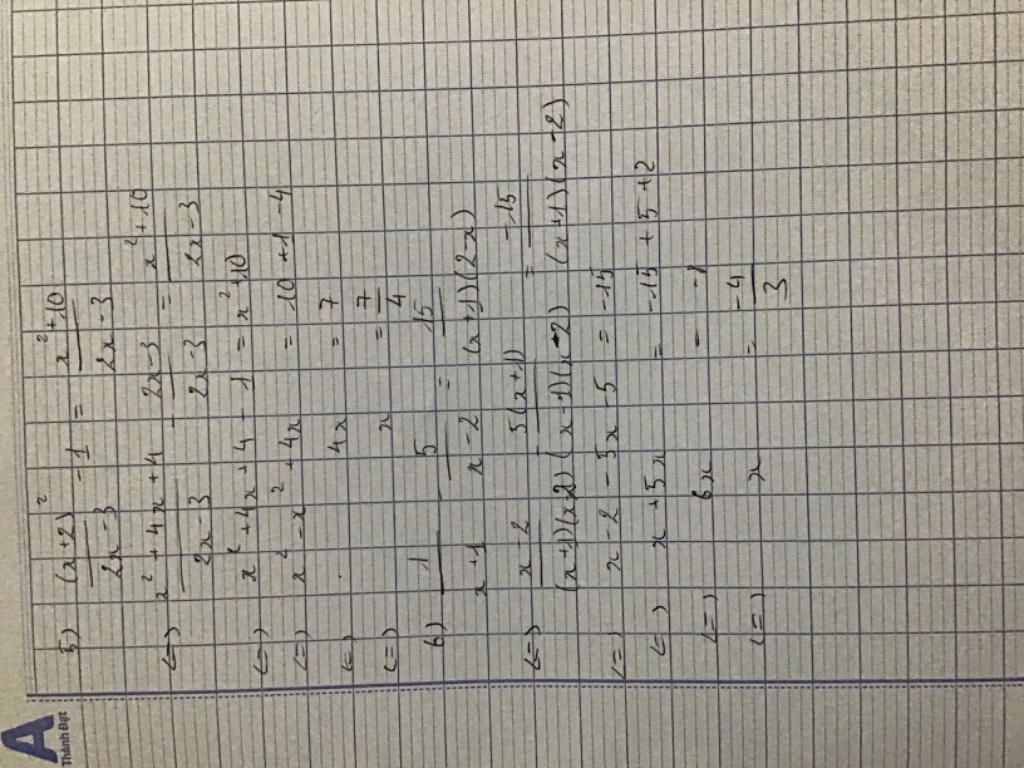 A
Thành Đạt
5) (x+2)²/(2x-3) - 1 = (x²+10)/(2x-3)
(=) (x²+4x+4)/(2x-3) - (2x-3)/(2x-3) = (x²+10)/(2x-3)
(=) x²+4x+4 - 1 = x²+10
(=) x²-x²+4x = 10+1-4
(=) 4x = 7
(=) x = 7/4
6) 1/(x+1) - 5/(x-2) = 15/((x+1)(2x))
(=) (x-2)/((x+1)(x-2)) - 5(x+1)/((x-1)(x-2)) = -15/((x+1)(x-2))
(=) x-2-5x-5 = -15
(=) x+5x = -15+5+2
(=) 6x = -8
(=) x = -4/3